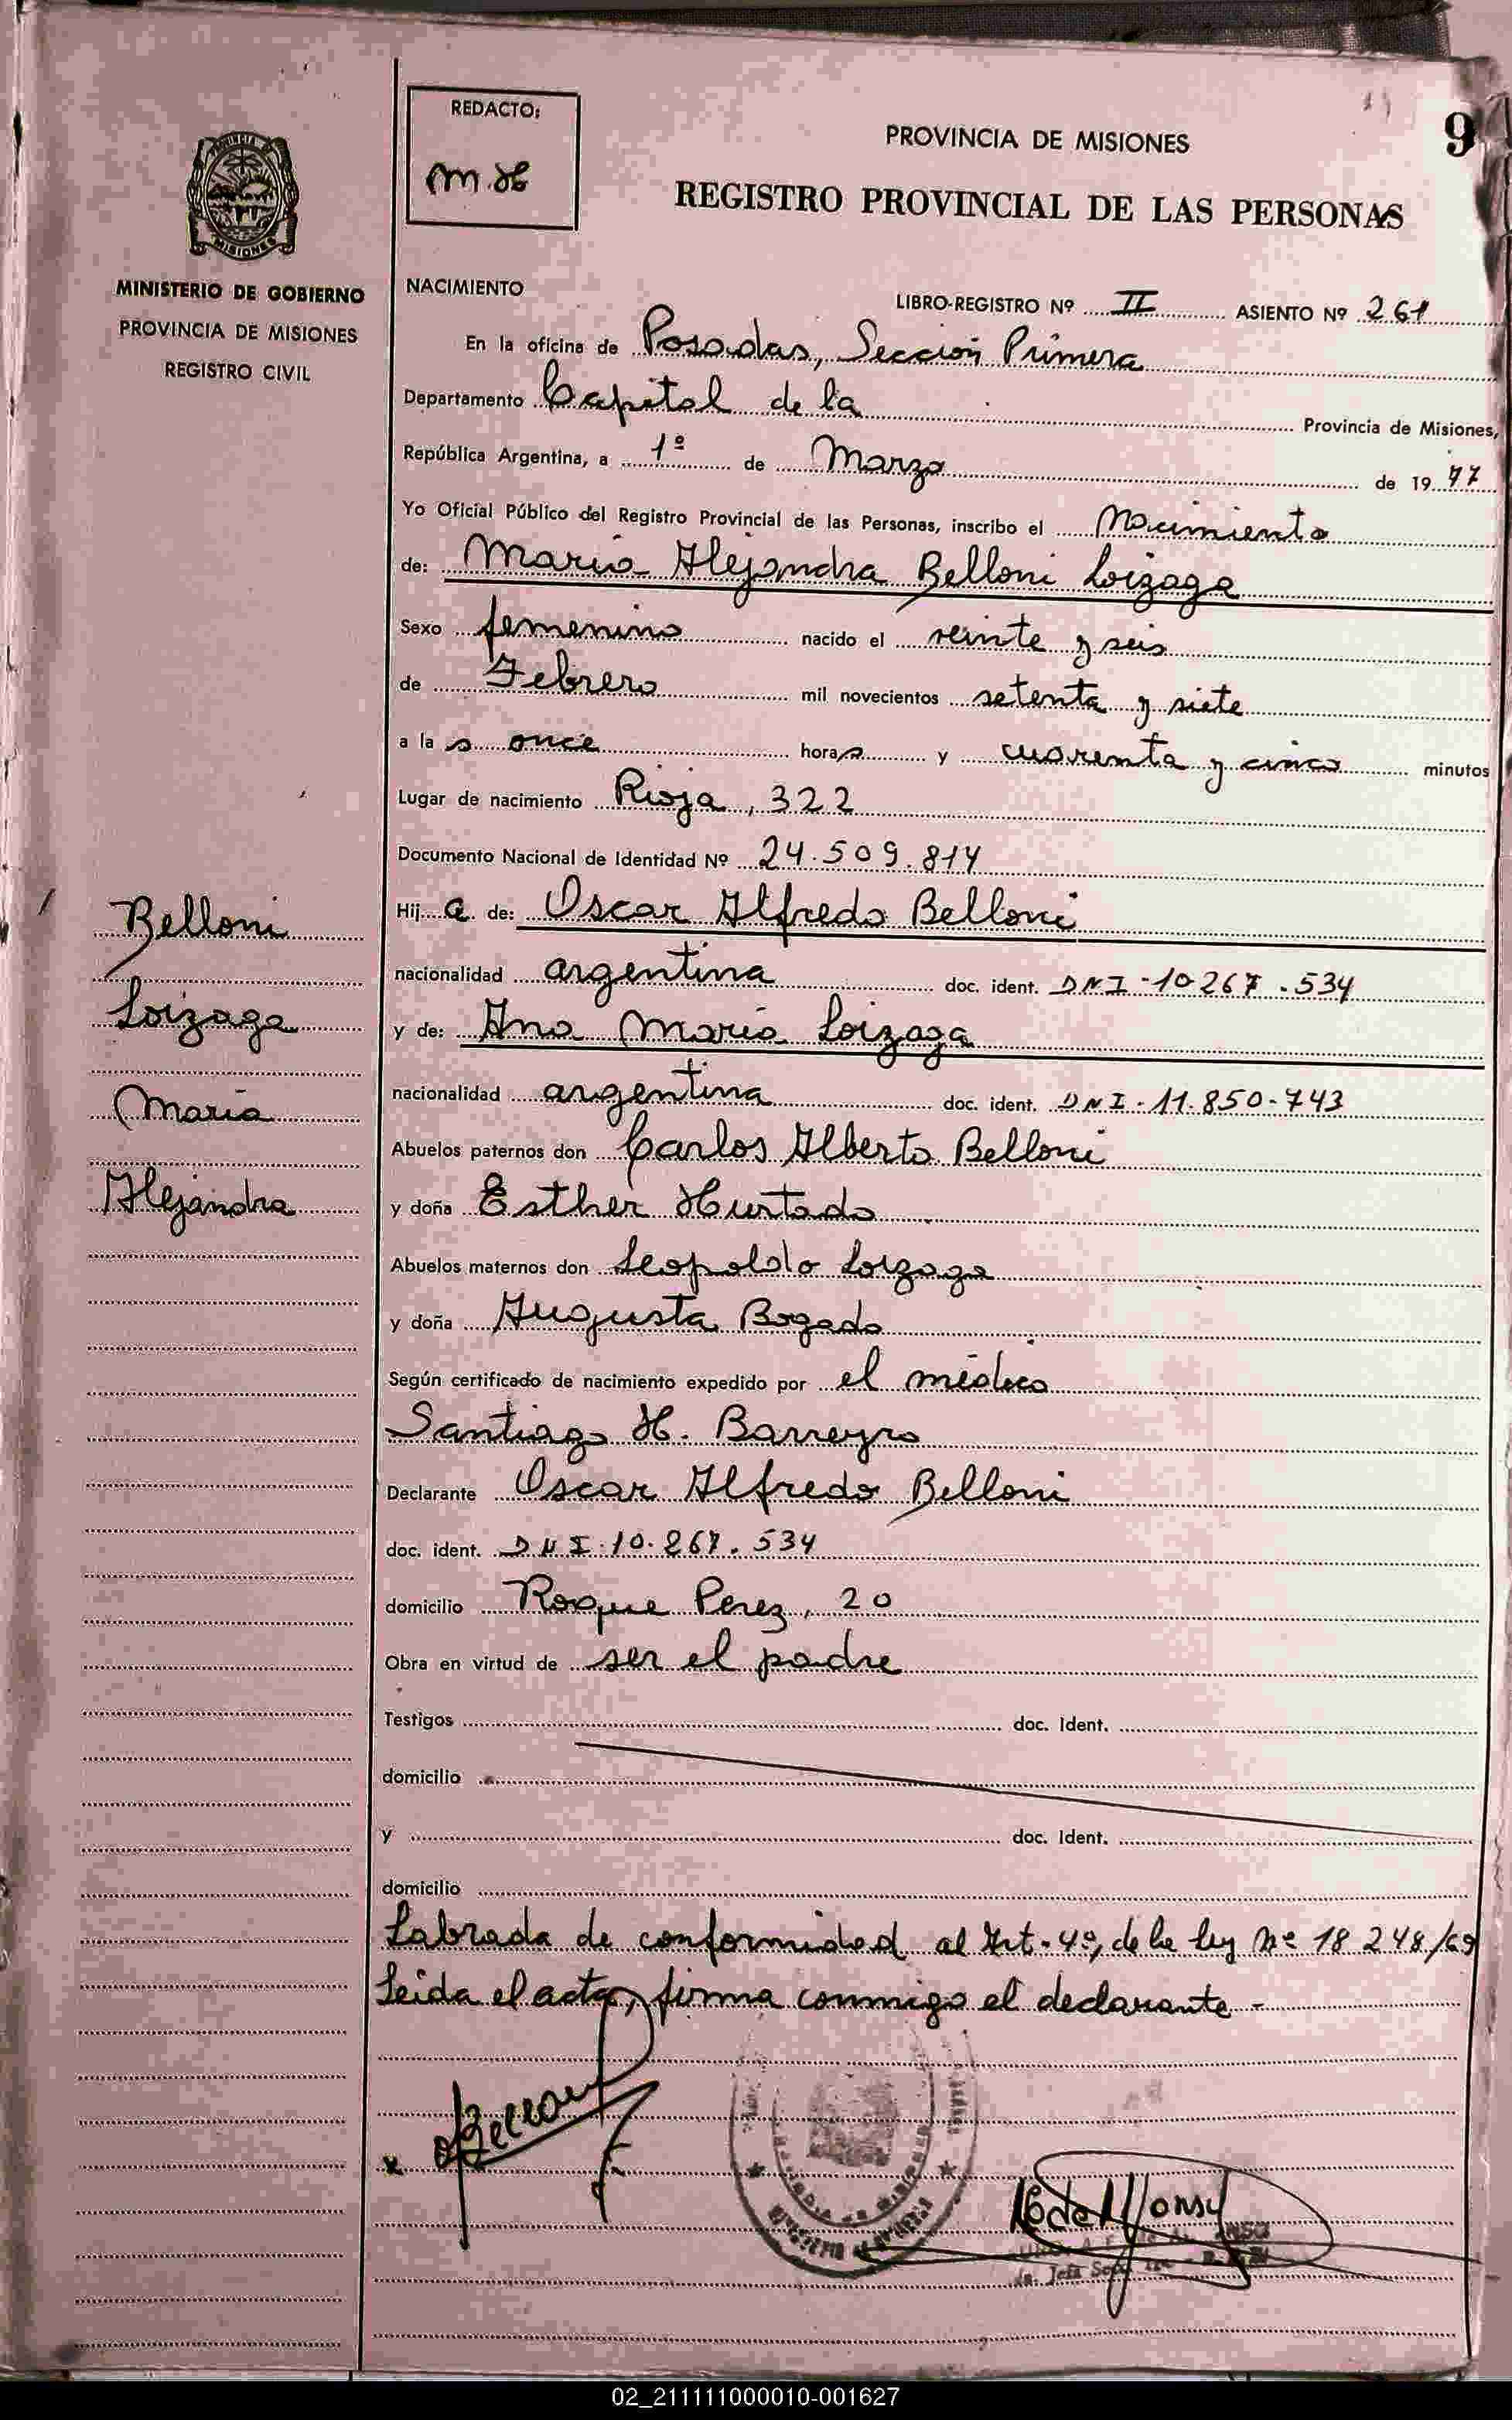 REDACTO:
M.H
PROVINCIA DE MISIONES
9
REGISTRO PROVINCIAL DE LAS PERSONAS
MISIONES
MINISTERIO DE GOBIERNO
PROVINCIA DE MISIONES
REGISTRO CIVIL
NACIMIENTO
LIBRO-REGISTRO Nº II ASIENTO Nº 261
En la oficina de Posadas, Sección Primera
Departamento Capital de la Provincia de Misiones,
República Argentina, a 1º de Marzo de 1977
Yo Oficial Público del Registro Provincial de las Personas, inscribo el Nacimiento
de: María Alejandra Belloni Loizaga
Sexo femenino nacido el veinte y seis
de Febrero mil novecientos setenta y siete
a la s once horas y cuarenta y cinco minutos
Lugar de nacimiento Rioja, 322
Documento Nacional de Identidad Nº 24.509.814
Hij a de: Oscar Alfredo Belloni
nacionalidad argentina doc. ident. DNI-10.267.534
y de: Ana María Loizaga
nacionalidad argentina doc. ident. DNI-11.850.743
Abuelos paternos don Carlos Alberto Belloni
y doña Esther Hurtado
Abuelos maternos don Leopoldo Loizaga
y doña Augusta Bogado
Según certificado de nacimiento expedido por el médico
Santiago H. Barreyro
Declarante Oscar Alfredo Belloni
doc. ident. DNI.10.267.534
domicilio Roque Perez, 20
Obra en virtud de ser el padre
Testigos doc. Ident.
domicilio
y doc. Ident.
domicilio
Labrada de conformidad al Art. 4º, de la ley Nº 18.248/69
Leida el acta, firma conmigo el declarante.-
Belloni
Loizaga
María
Alejandra
x OBelloni
02_211111000010-001627